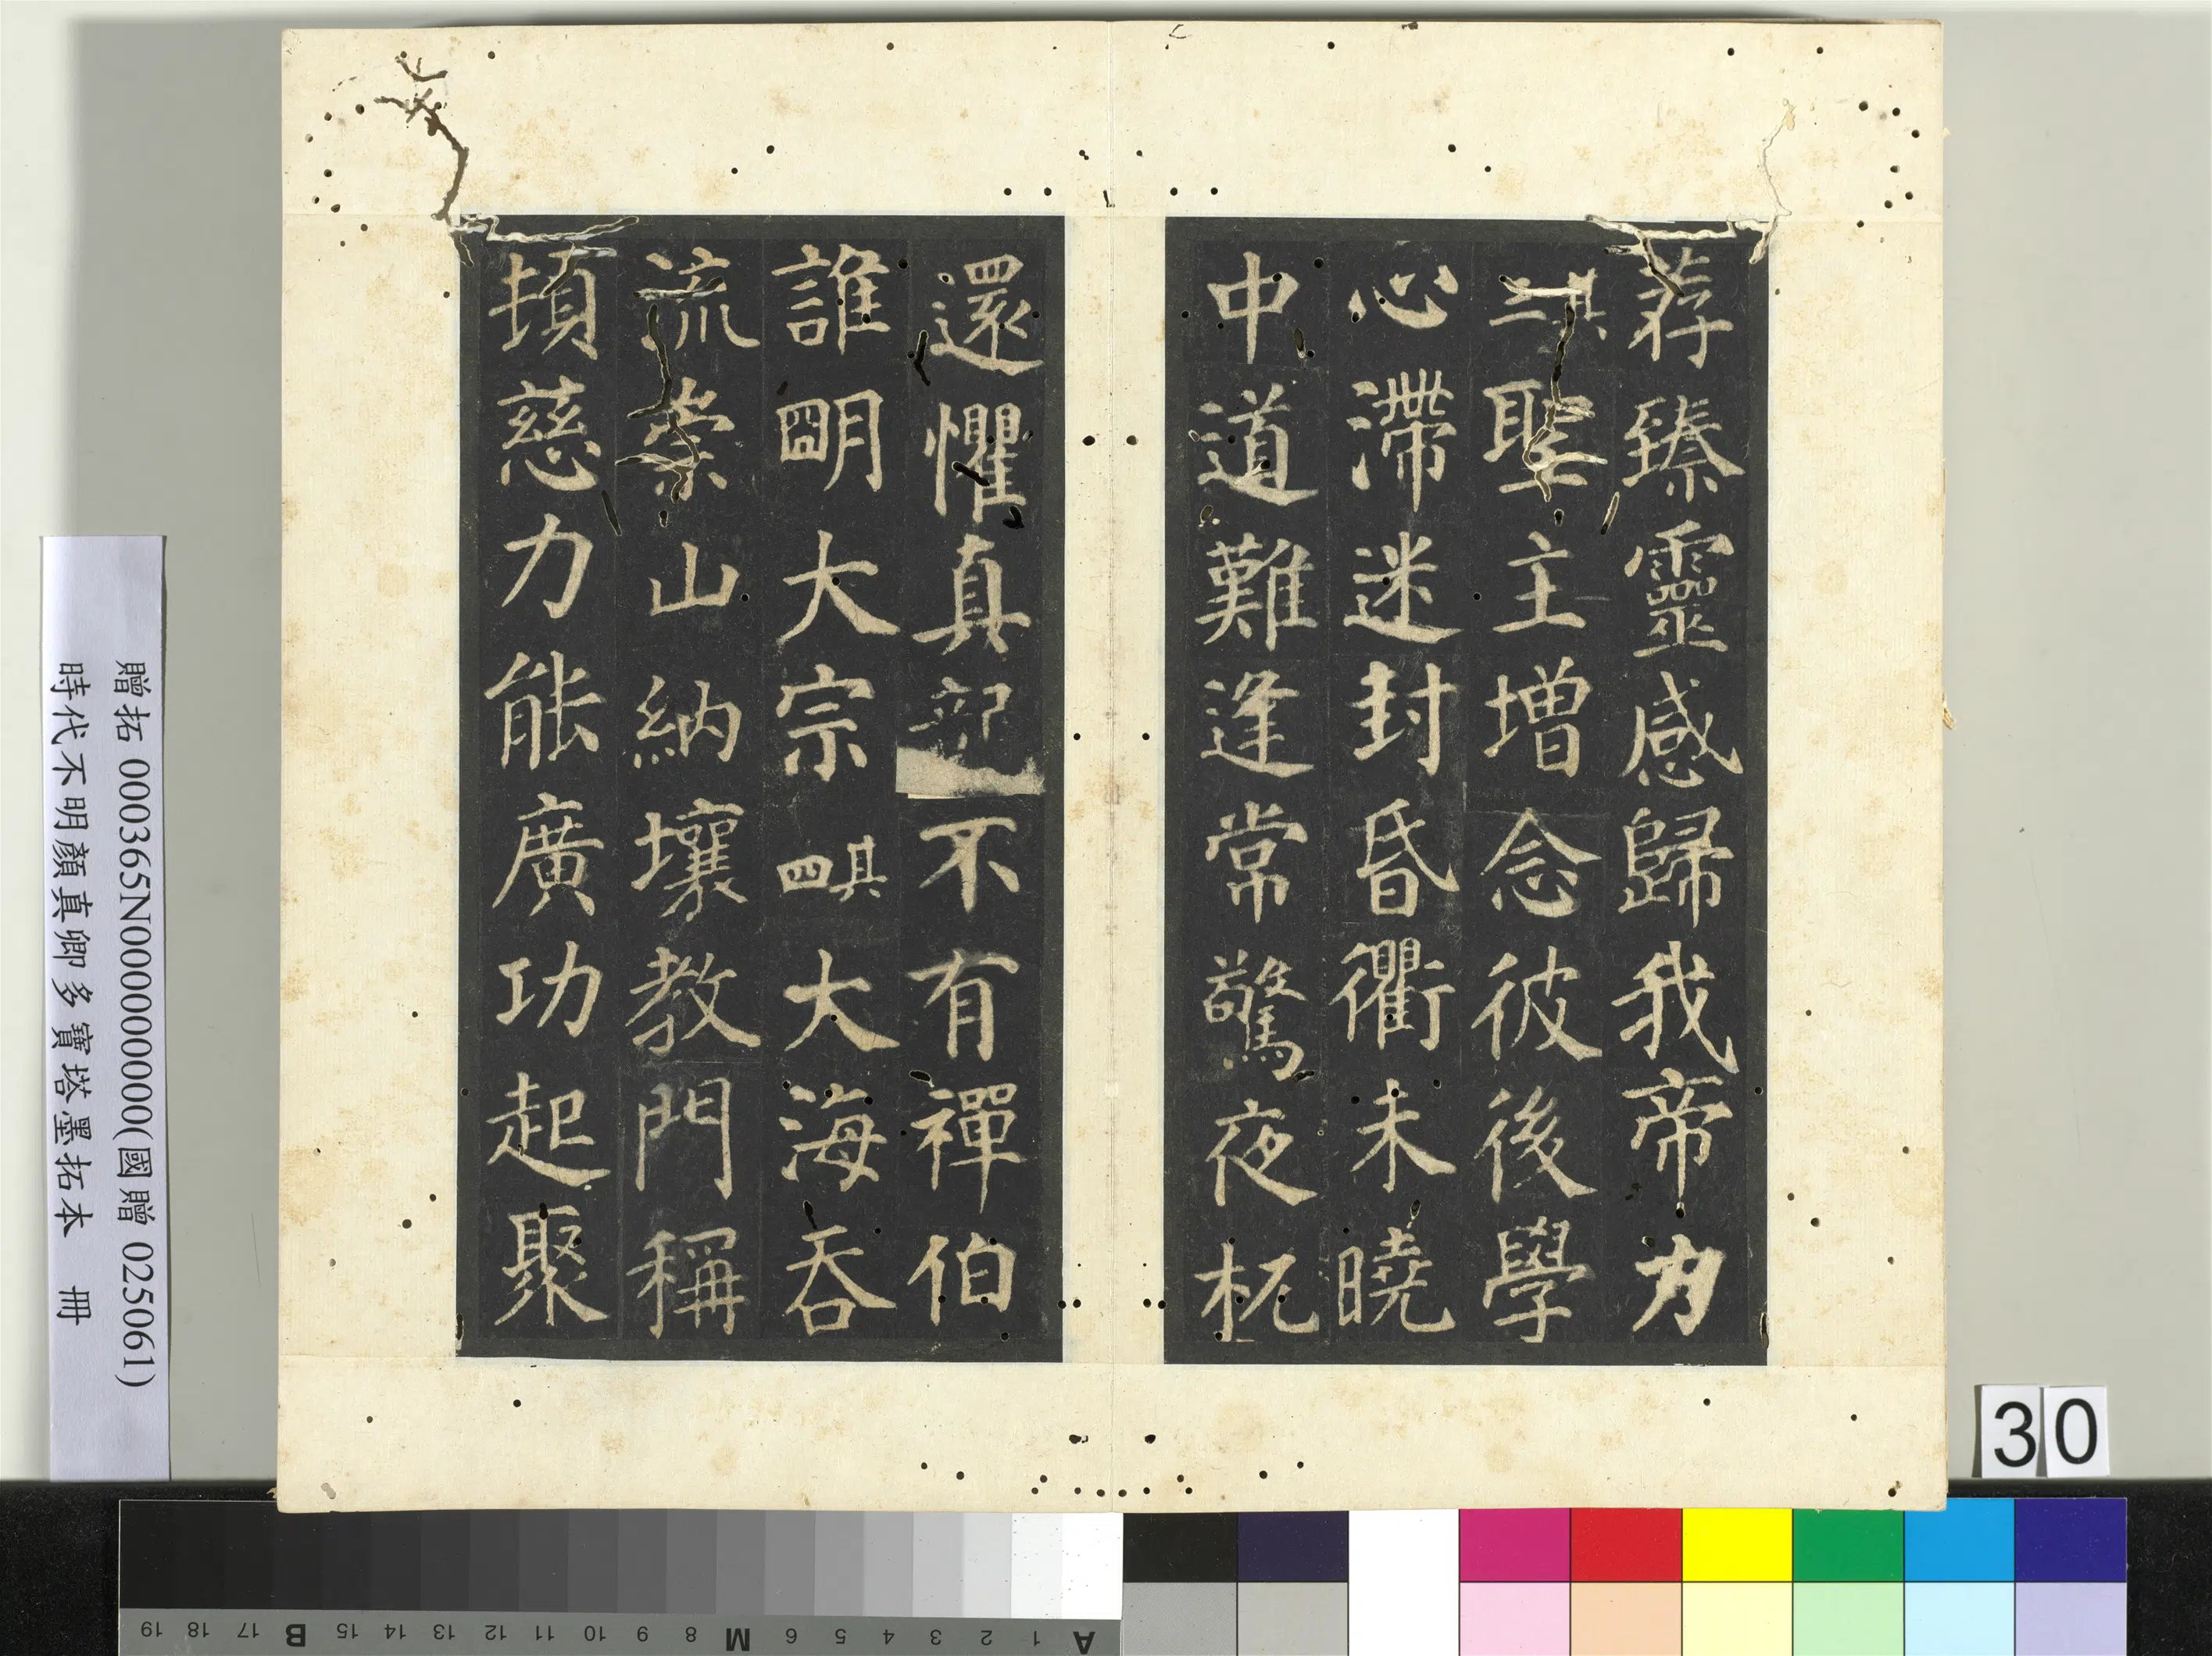 荐臻靈感歸我帝力
其三聖主增念彼後學
心滯迷封昏衢未曉
中道難逢常驚夜枙
還懼真不有禪伯
誰明大宗其四大海吞
流崇山納壤教門稱
頓慈力能廣功起聚
贈拓 000365N000000000(國贈 025061)
時代不明顏真卿多寶塔墨拓本 冊
30
A 1 2 3 4 5 6 M 8 9 10 11 12 13 14 15 B 17 18 19